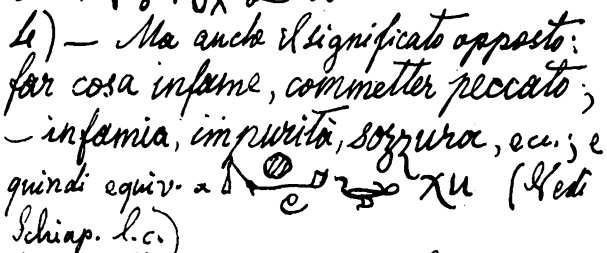 le) — Ma anche il significato opposto:
far cosa infame, commetter peccato;
— infamia, impurità, sozzura, ecc.; e
quindi equiv. a χu (Vedi
Schiap. l.c.)